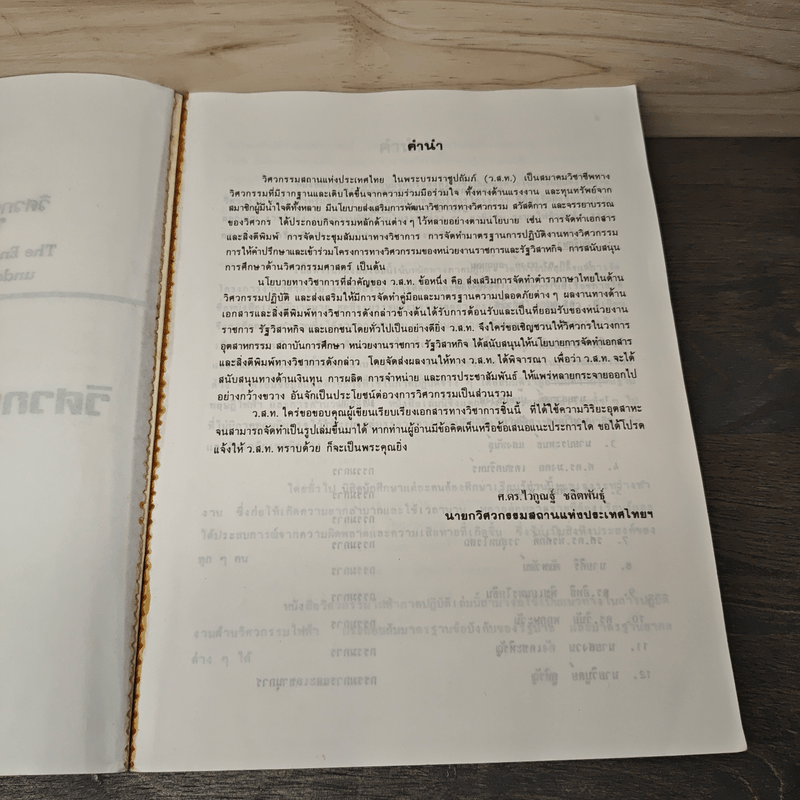 คำนำ
วิศวกรรมสถานแห่งประเทศไทย ในพระบรมราชูปถัมภ์ (ว.ส.ท.) เป็นสมาคมวิชาชีพทาง
วิศวกรรมที่มีรากฐานและเติบโตขึ้นจากความร่วมมือร่วมใจ ทั้งทางด้านแรงงาน และทุนทรัพย์จาก
สมาชิกผู้มีน้ำใจดีทั้งหลาย มีนโยบายส่งเสริมการพัฒนาวิชาการทางวิศวกรรม สวัสดิการ และจรรยาบรรณ
ของวิศวกร ได้ประกอบกิจกรรมหลักด้านต่าง ๆ ไว้หลายอย่างตามนโยบาย เช่น การจัดทำเอกสาร
และสิ่งตีพิมพ์ การจัดประชุมสัมมนาทางวิชาการ การจัดทำมาตรฐานการปฏิบัติงานทางวิศวกรรม
การให้คำปรึกษาและเข้าร่วมโครงการทางวิศวกรรมของหน่วยงานราชการและรัฐวิสาหกิจ การสนับสนุน
การศึกษาด้านวิศวกรรมศาสตร์ เป็นต้น
นโยบายทางวิชาการที่สำคัญของ ว.ส.ท. ข้อหนึ่ง คือ ส่งเสริมการจัดทำตำราภาษาไทยในด้าน
วิศวกรรมปฏิบัติ และส่งเสริมให้มีการจัดทำคู่มือและมาตรฐานความปลอดภัยต่าง ๆ ผลงานทางด้าน
เอกสารและสิ่งตีพิมพ์ทางวิชาการดังกล่าวข้างต้นได้รับการต้อนรับและเป็นที่ยอมรับของหน่วยงาน
ราชการ รัฐวิสาหกิจ และเอกชนโดยทั่วไปเป็นอย่างดียิ่ง ว.ส.ท. จึงใคร่ขอเชิญชวนให้วิศวกรในวงการ
อุตสาหกรรม สถาบันการศึกษา หน่วยงานราชการ รัฐวิสาหกิจ ได้สนับสนุนให้นโยบายการจัดทำเอกสาร
และสิ่งตีพิมพ์ทางวิชาการดังกล่าว โดยจัดส่งผลงานให้ทาง ว.ส.ท. ได้พิจารณา เพื่อว่า ว.ส.ท. จะได้
สนับสนุนทางด้านเงินทุน การผลิต การจำหน่าย และการประชาสัมพันธ์ ให้แพร่หลายกระจายออกไป
อย่างกว้างขวาง อันจักเป็นประโยชน์ต่อวงการวิศวกรรมเป็นส่วนรวม
ว.ส.ท. ใคร่ขอขอบคุณผู้เขียนเรียบเรียงเอกสารทางวิชาการชิ้นนี้ ที่ได้ใช้ความวิริยะอุตสาหะ
จนสามารถจัดทำเป็นรูปเล่มขึ้นมาได้ หากท่านผู้อ่านมีข้อคิดเห็นหรือข้อเสนอแนะประการใด ขอได้โปรด
แจ้งให้ ว.ส.ท. ทราบด้วย ก็จะเป็นพระคุณยิ่ง
ศ.ดร.ไวกูณฐ์ ชลิตพันธุ์
นายกวิศวกรรมสถานแห่งประเทศไทยฯ